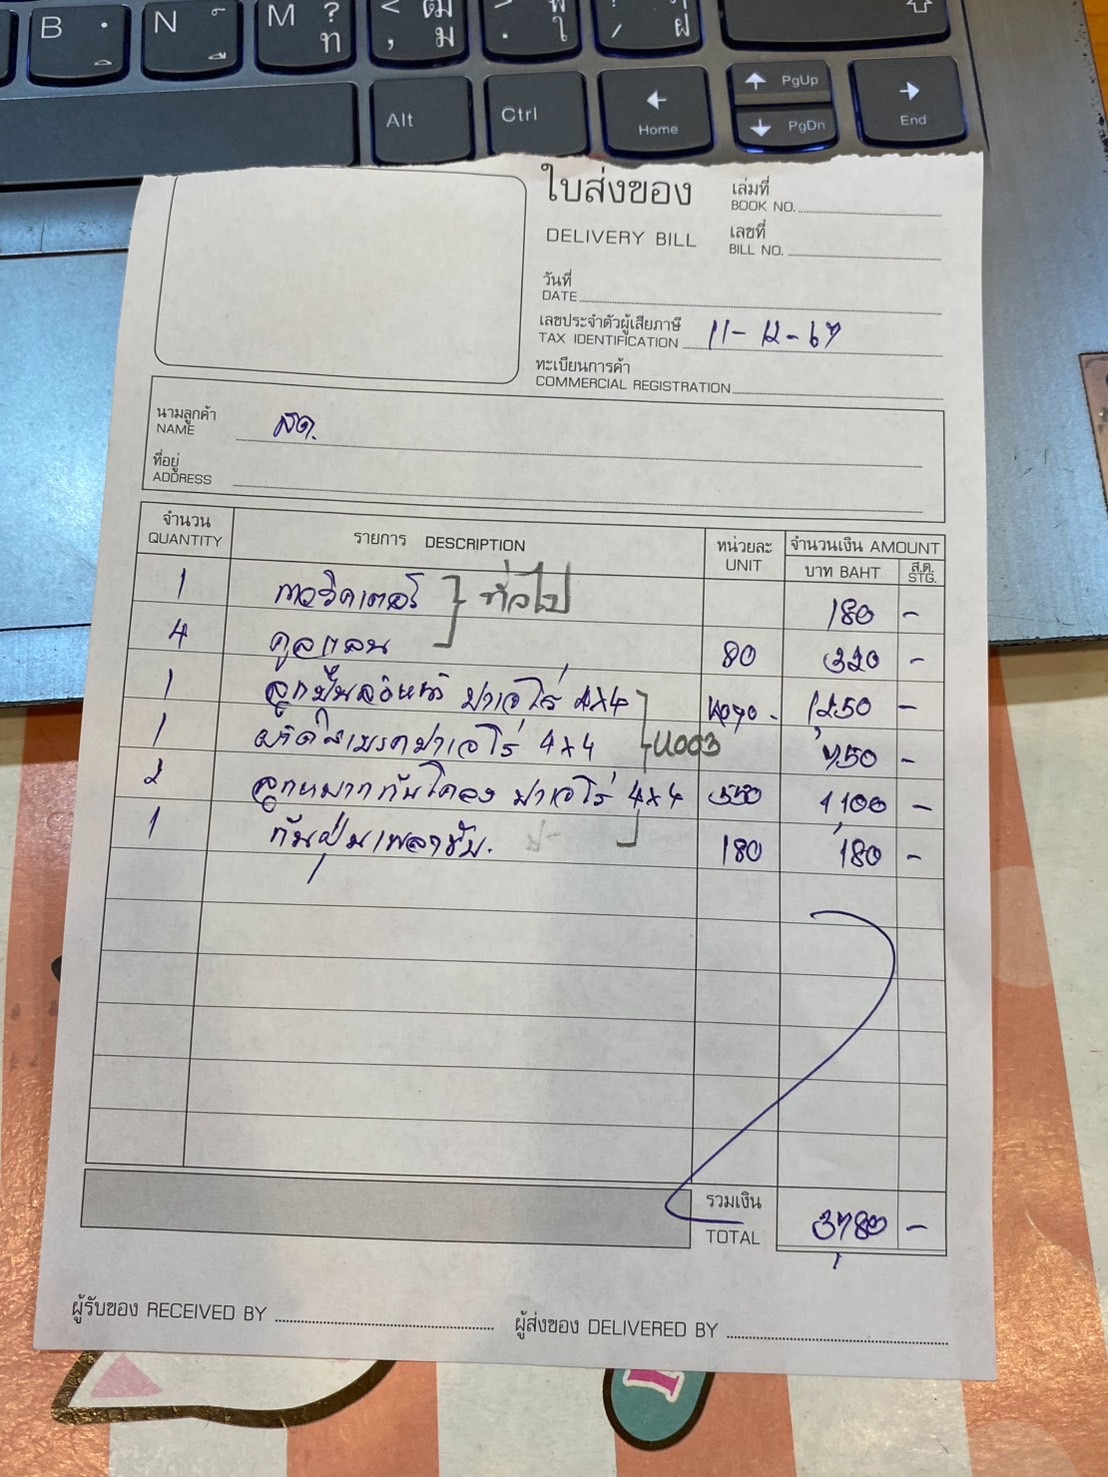 B
N
M ? ท
< , ฒ ม
> . ฬ ใ
? / ฦ ฝ
Alt
Ctrl
Home
PgUp
PgDn
End
ใบส่งของ
DELIVERY BILL
เล่มที่
BOOK NO.
เลขที่
BILL NO.
วันที่
DATE
เลขประจำตัวผู้เสียภาษี
TAX IDENTIFICATION 11-12-67
ทะเบียนการค้า
COMMERCIAL REGISTRATION
นามลูกค้า
NAME สด.
ที่อยู่
ADDRESS
จำนวน รายการ DESCRIPTION หน่วยละ จำนวนเงิน AMOUNT
QUANTITY UNIT บาท BAHT ส.ต. STG.
1 กาวริคเตอร์ ทั่วไป 180 -
4 คูลแลน 80 320 -
1 ลูกปืนล้อหน้า ปาเจโร่ 4x4 1250 -
1 ปาเจโร่ 4x4 น003 750 -
2 ลูกหมากกันโคลง ปาเจโร่ 4x4 550 1,100 -
1 กันฝุ่นเพลาขับ. 180 180 -
รวมเงิน
TOTAL 3,780 -
ผู้รับของ RECEIVED BY
ผู้ส่งของ DELIVERED BY